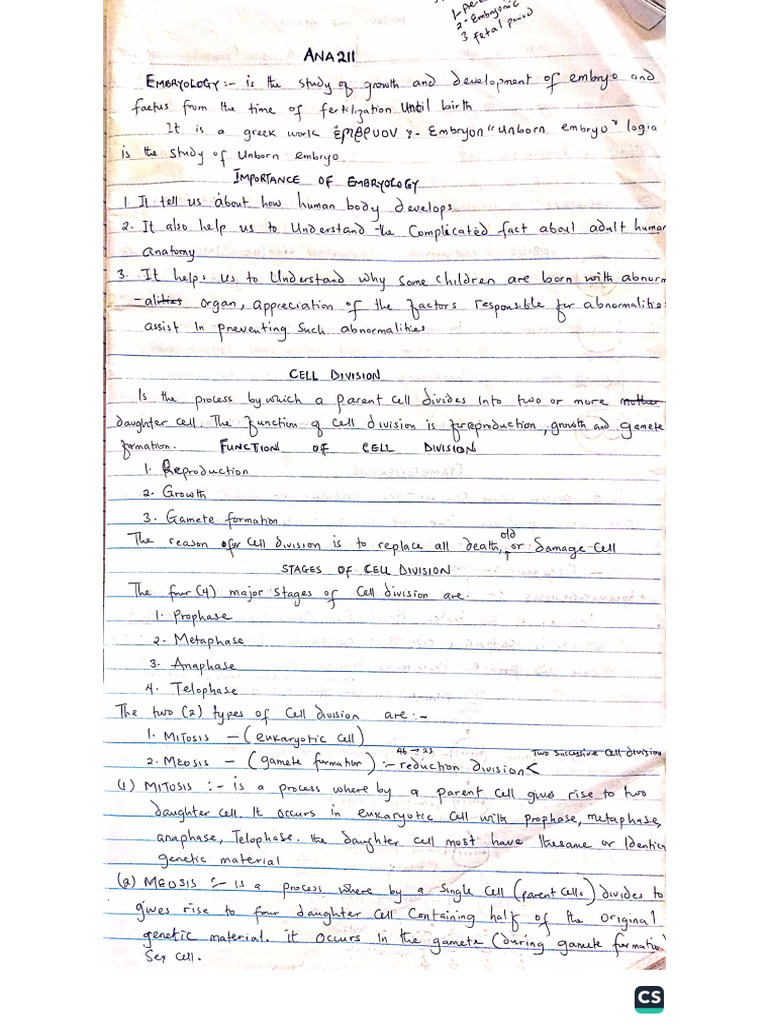 2- Embryonic
3 fetal period
ANA211
EMBRYOLOGY:- is the study of growth and development of embryo and
faetus from the time of fertilization until birth
It is a greek work :- Embryon "unborn embryo" logia
is the study of unborn embryo
IMPORTANCE OF EMBRYOLOGY
1. It tell us about how human body develops.
2. It also help us to understand the complicated fact about adult human
anatomy
3. It helps us to understand why some children are born with abnorm
-alities organ, appreciation of the factors responsible for abnormalities
assist in preventing such abnormalities
CELL DIVISION
Is the process by which a parent cell divides into two or more mother
daughter cell. The function of cell division is for reproduction, growth and gamete
formation. FUNCTION OF CELL DIVISION
1. Reproduction
2. Growth
3. Gamete formation
old
The reason for cell division is to replace all death, or damage cell
STAGES OF CELL DIVISION
The four (4) major stages of cell division are:
1. Prophase
2. Metaphase
3. Anaphase
4. Telophase
The two (2) types of cell division are :-
1. MITOSIS - (eukaryotic cell)
46 → 23 Two successive cell division
2. MEOSIS - (gamete formation) :- reduction division <
(1) MITOSIS :- is a process where by a parent cell gives rise to two
daughter cell. It occurs in eukaryotic cell with prophase, metaphase,
anaphase, Telophase. the daughter cell most have thesame or Identic
genetic material
(2) MEOSIS :- is a process where by a single cell (parent cells) divides to
gives rise to four daughter cell containing half of the original
genetic material. it occurs in the gamete (during gamete formation)
Sex cell.
CS